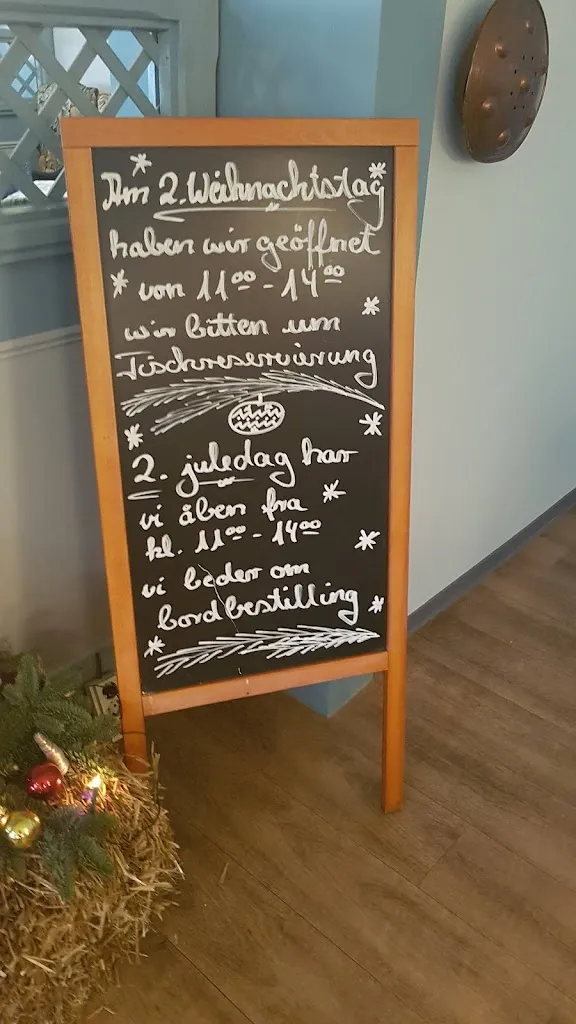 Am 2. Weihnachtstag
haben wir geöffnet
von 11⁰⁰ - 14⁰⁰
wir bitten um
Tischreservierung
2. juledag har
vi åben fra
kl. 11⁰⁰ - 14⁰⁰
vi beder om
bordbestilling